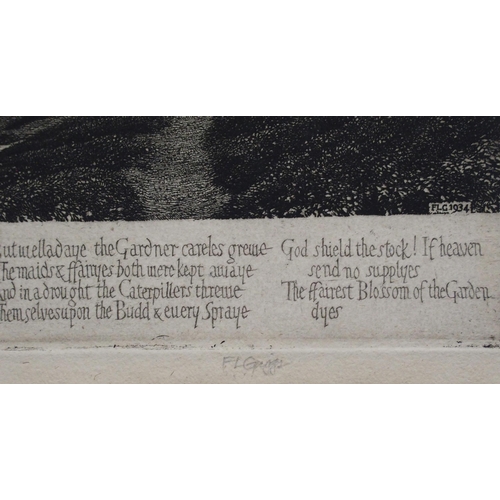 FLG 1934
but welladaye the Gardner careles grewe
The maids & ffairyes both were kept awaye
And in a drought the Caterpillers threwe
Themselves upon the Budd & euery Spraye
God shield the stock! If heaven
send no supplyes
The ffairest Blossom of the Garden
dyes
F L Griggs